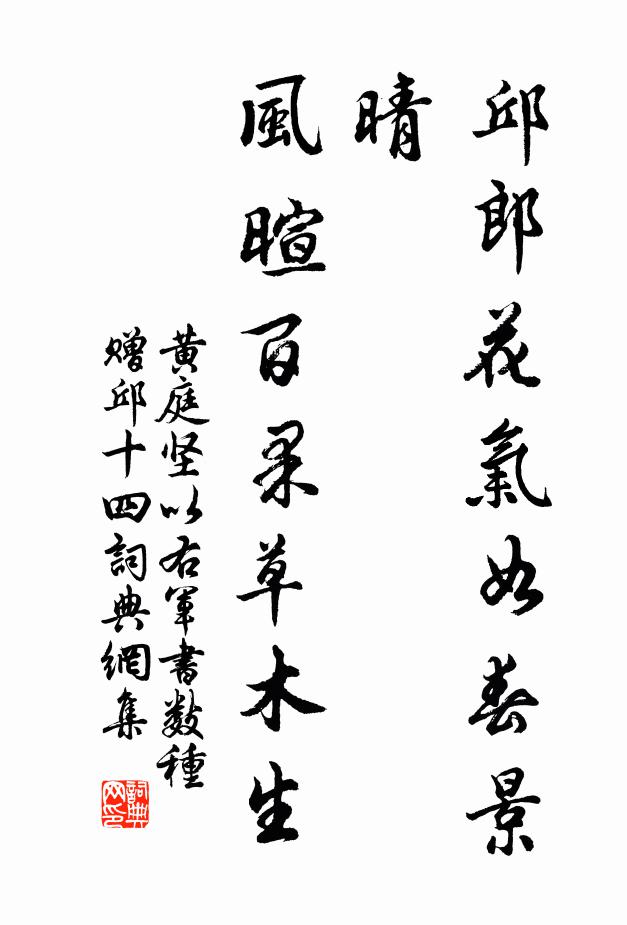 邱郎花氣如春景
晴
風暄百果草木生
黄庭坚以右軍書数種
贈邱十四詞典網集
詞典
网印